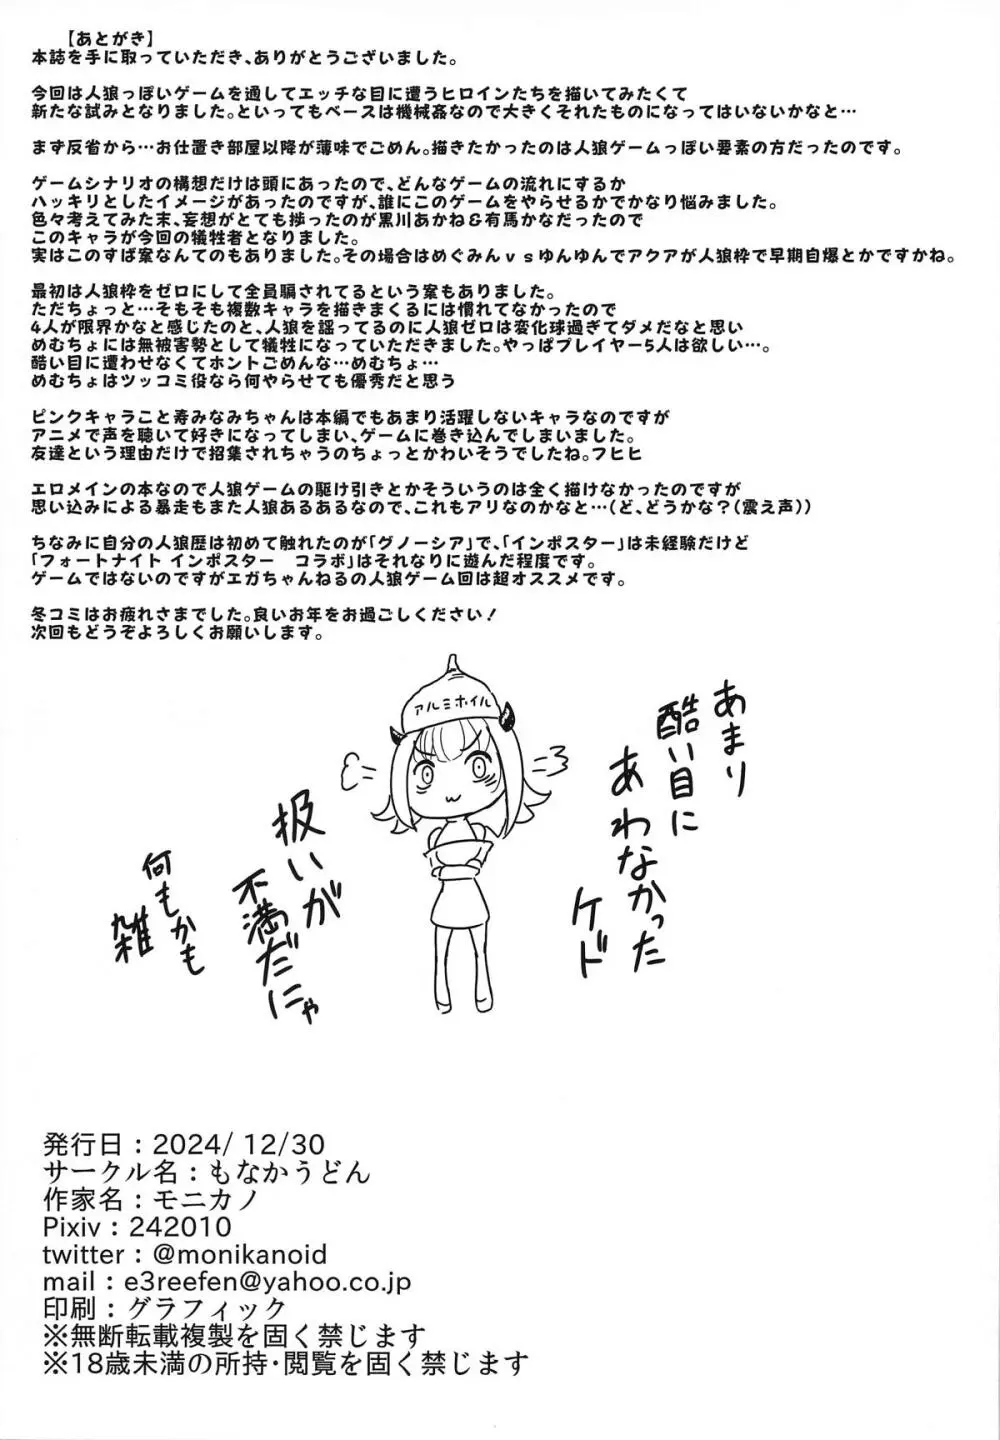 【あとがき】
本誌を手に取っていただき、ありがとうございました。
今回は人狼っぽいゲームを通してエッチな目に遭うヒロインたちを描いてみたくて
新たな試みとなりました。といってもベースは機械姦なので大きくそれたものになってはいないかなと…
まず反省から…お仕置き部屋以降が薄味でごめん。描きたかったのは人狼ゲームっぽい要素の方だったのです。
ゲームシナリオの構想だけは頭にあったので、どんなゲームの流れにするか
ハッキリとしたイメージがあったのですが、誰にこのゲームをやらせるかでかなり悩みました。
色々考えてみた末、妄想がとても捗ったのが黒川あかね＆有馬かなだったので
このキャラが今回の犠牲者となりました。
実はこのすば案なんてのもありました。その場合はめぐみんｖｓゆんゆんでアクアが人狼枠で早期自爆とかですかね。
最初は人狼枠をゼロにして全員騙されてるという案もありました。
ただちょっと…そもそも複数キャラを描きまくるには慣れてなかったので
4人が限界かなと感じたのと、人狼を謳ってるのに人狼ゼロは変化球過ぎてダメだなと思い
めむちょには無被害勢として犠牲になっていただきました。やっぱプレイヤー5人は欲しい…。
酷い目に遭わせなくてホントごめんな…めむちょ…
めむちょはツッコミ役なら何やらせても優秀だと思う
ピンクキャラこと寿みなみちゃんは本編でもあまり活躍しないキャラなのですが
アニメで声を聴いて好きになってしまい、ゲームに巻き込んでしまいました。
友達という理由だけで招集されちゃうのちょっとかわいそうでしたね。フヒヒ
エロメインの本なので人狼ゲームの駆け引きとかそういうのは全く描けなかったのですが
思い込みによる暴走もまた人狼あるあるなので、これもアリなのかなと…(ど、どうかな？(震え声))
ちなみに自分の人狼歴は初めて触れたのが「グノーシア」で、「インポスター」は未経験だけど
「フォートナイト インポスター　コラボ」はそれなりに遊んだ程度です。
ゲームではないのですがエガちゃんねるの人狼ゲーム回は超オススメです。
冬コミはお疲れさまでした。良いお年をお過ごしください！
次回もどうぞよろしくお願いします。
アルミホイル
あまり
酷い目に
あわなかった
ケド
扱いが
不満だにゃ
何もかも
雑
発行日：2024/ 12/30
サークル名：もなかうどん
作家名：モニカノ
Pixiv：242010
twitter：@monikanoid
mail：e3reefen@yahoo.co.jp
印刷：グラフィック
※無断転載複製を固く禁じます
※18歳未満の所持・閲覧を固く禁じます